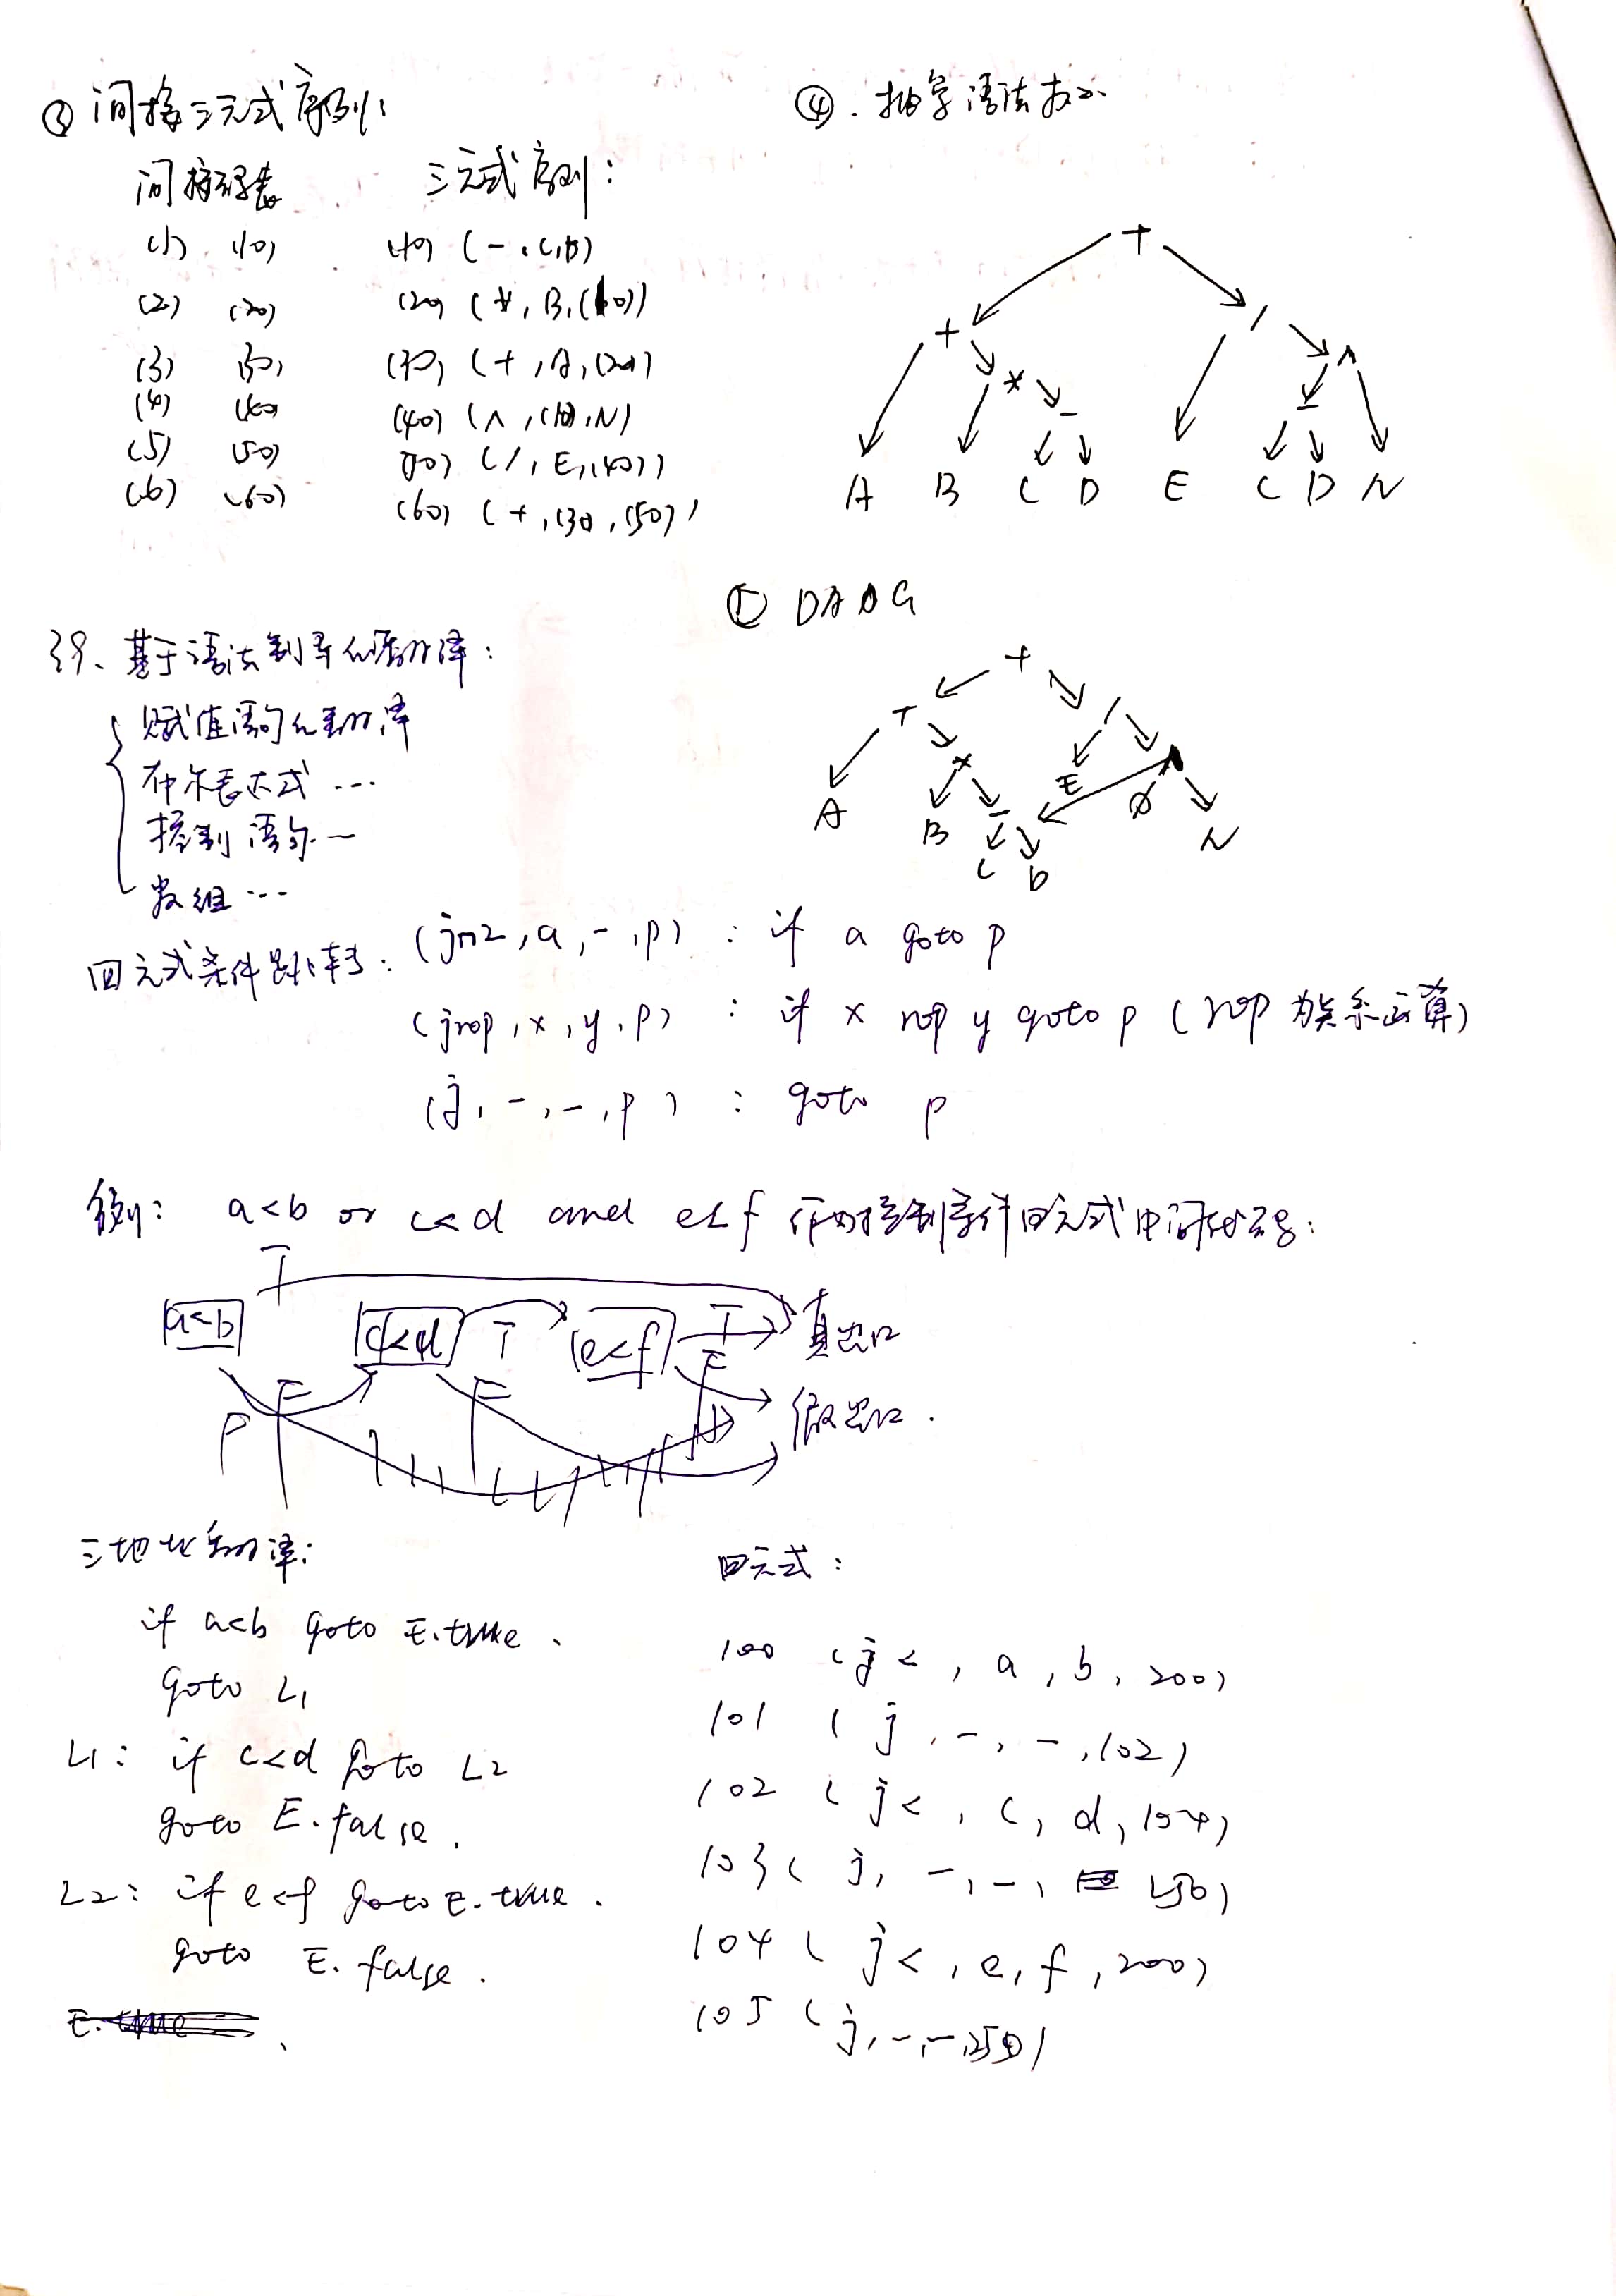 ③ 间接三元式序列:
间接码表 三元式序列:
(1) (10) (10) (-, C, D)
(2) (20) (20) (*, B, (10))
(3) (30) (30) (+, A, (20))
(4) (40) (40) (∧, (10), N)
(5) (50) (50) (/, E, (40))
(6) (60) (60) (+, (30), (50))
④. 抽象语法树
+
+ /
* ∧
- -
A B C D E C D N
⑤ DAG
+
+ /
* E ∧
A B - N
C D
39、基于语法制导的翻译:
赋值语句的翻译
布尔表达式 …
控制语句 …
数组 …
四元式条件跳转: (jnz, a, -, p) : if a goto p
(jrop, x, y, p) : if x rop y goto p (rop 为关系运算)
(j, -, -, p) : goto p
例: a<b or c<d and e<f 作为控制条件四元式中间代码:
T
a<b c<d T e<f T 真出口
F F F 假出口.
三地址翻译:
if a<b goto E.true.
goto L1
L1: if c<d goto L2
goto E.false.
L2: if e<f goto E.true.
goto E.false.
四元式:
100 (j<, a, b, 200)
101 (j, -, -, 102)
102 (j<, c, d, 104)
103 (j, -, -, 250)
104 (j<, e, f, 200)
105 (j, -, -, 250)